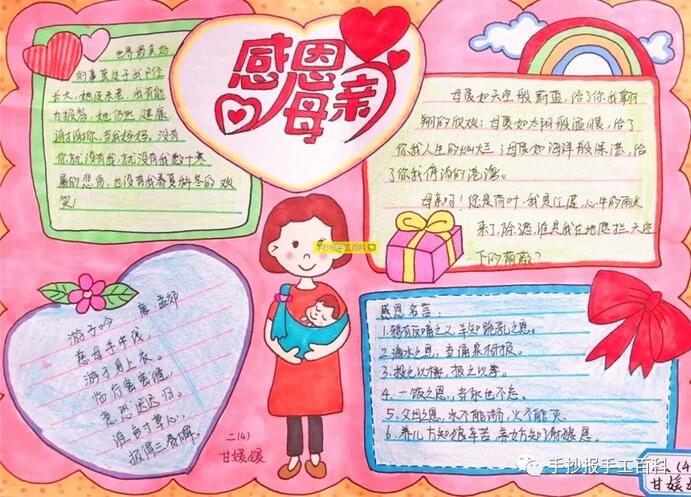 感恩
母亲
世界最美妙
的事莫过于我已经
长大，她还未老，我有能
力报答，她仍然健康。
谢谢你，亲爱妈妈。没有
你就没有我，就没有我数十寒
暑的悲伤，也没有我春夏秋冬的欢
笑！
母爱如天空般蔚蓝，给了你我翱
翔的欣欢；母爱如太阳般温暖，给了
你我人生的灿烂；母爱如海洋般深湛，给
了你我停泊的港湾。
母亲呵！您是荷叶，我是红莲，心中的雨点
来了，除了您，谁是我在无遮拦天空
下的荫蔽？
手抄报手工百科
游子吟
孟郊
慈母手中线，
游子身上衣。
临行密密缝，
意恐迟迟归。
谁言寸草心，
报得三春晖。
二(4)
甘媛媛
感恩名言：
1.鸦有反哺之义，羊知跪乳之恩。
2.滴水之恩，当涌泉相报。
3.投之以桃，报之以李。
4.一饭之恩，当永世不忘。
5.父母之恩，水不能溺，火不能灭。
6.养儿方知娘辛苦，养女方知谢娘恩。
手抄报手工百科
(4)
甘媛